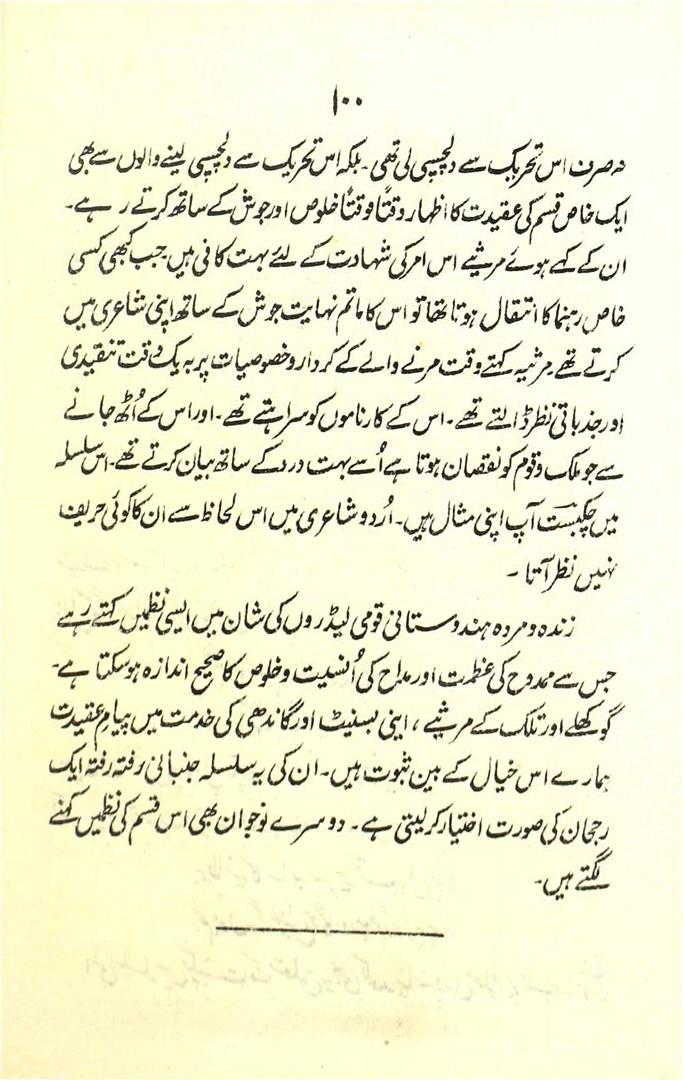 ۱۰۰
نہ صرف اس تحریک سے دلچسپی لی تھی۔ بلکہ اس تحریک سے دلچسپی لینے والوں سے بھی
ایک خاص قسم کی عقیدت کا اظہار وقتاً وقتاً خلوص اور جوش کے ساتھ کرتے رہے۔
ان کے کہے ہوئے مرثیے اس امر کی شہادت کے لئے بہت کافی ہیں۔ جب کبھی کسی
خاص رہنما کا انتقال ہوتا تھا تو اس کا ماتم نہایت جوش کے ساتھ اپنی شاعری میں
کرتے تھے۔ مرثیہ کہتے وقت مرنے والے کے کردار و خصوصیات پر بہ یک وقت تنقیدی
اور جذباتی نظر ڈالتے تھے۔ اس کے کارناموں کو سراہتے تھے۔ اور اس کے اُٹھ جانے
سے جو ملک و قوم کو نقصان ہوتا ہے اُسے بہت درد کے ساتھ بیان کرتے تھے۔ اس سلسلہ
میں چکبست آپ اپنی مثال ہیں۔ اُردو شاعری میں اس لحاظ سے ان کا کوئی حریف
نہیں نظر آتا ۔
زندہ و مردہ ہندوستانی قومی لیڈروں کی شان میں ایسی نظمیں کہتے رہے
جس سے ممدوح کی عظمت اور مداح کی اُنسیت و خلوص کا صحیح اندازہ ہو سکتا ہے۔
گوکھلے اور تلک کے مرثیے ، اینی بسنیٹ اور گاندھی کی خدمت میں پیام عقیدت
ہمارے اس خیال کے بین ثبوت ہیں۔ ان کی یہ سلسلہ جنبانی رفتہ رفتہ ایک
رجحان کی صورت اختیار کر لیتی ہے۔ دوسرے نوجوان بھی اس قسم کی نظمیں کہنے
لگتے ہیں۔